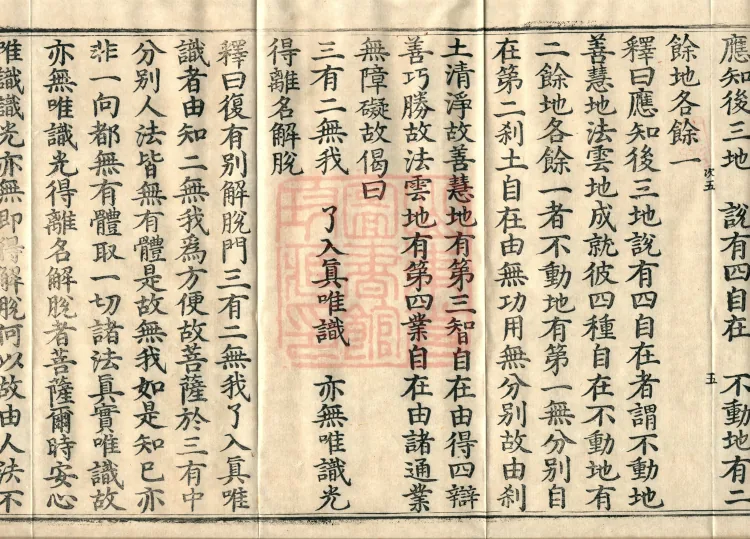 應知後三地 說有四自在 不動地有二
餘地各餘一
釋曰應知後三地說有四自在者謂不動地
善慧地法雲地成就彼四種自在不動地有
二餘地各餘一者不動地有第一無分別自
在第二剎土自在由無功用無分別故由剎
土清淨故善慧地有第三智自在由得四辯
善巧勝故法雲地有第四業自在由諸通業
無障礙故偈曰
三有二無我 了入眞唯識 亦無唯識光
得離名解脫
釋曰復有別解脫門三有二無我了入眞唯
識者由知二無我爲方便故菩薩於三有中
分別人法皆無有體是故無我如是知已亦
非一向都無有體取一切諸法眞實唯識故
亦無唯識光得離名解脫者菩薩爾時安心
唯識識光亦無即得解脫何以故由人法不
次五
五